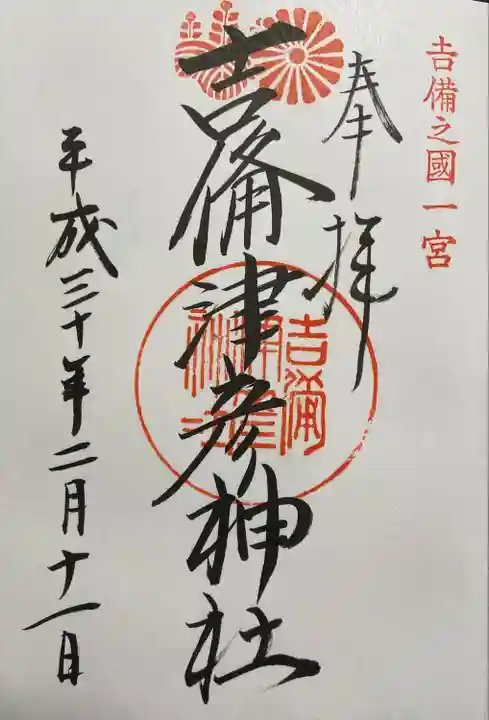 吉備之國一宮
奉拝
吉備津彦神社
平成三十年二月十一日